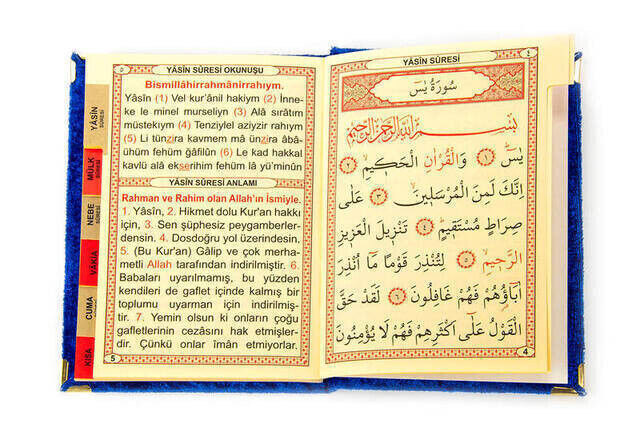 YÂSİN SÛRESİ
٤
سُورَةُ يٰسٓ
بِسْمِ اللّٰهِ الرَّحْمٰنِ الرَّحٖيمِ
يٰسٓ ﴿١﴾ وَالْقُرْاٰنِ الْحَكٖيمِ ﴿٢﴾
اِنَّكَ لَمِنَ الْمُرْسَلٖينَ ﴿٣﴾ عَلٰى
صِرَاطٍ مُسْتَقٖيمٍ ﴿٤﴾ تَنْزٖيلَ الْعَزٖيزِ
الرَّحٖيمِ ﴿٥﴾ لِتُنْذِرَ قَوْمًا مَٓا اُنْذِرَ
اٰبَٓاؤُ۬هُمْ فَهُمْ غَافِلُونَ ﴿٦﴾ لَقَدْ حَقَّ
الْقَوْلُ عَلٰٓى اَكْثَرِهِمْ فَهُمْ لَا يُؤْمِنُونَ
4
٥
YÂSİN SÛRESİ OKUNUŞU
Bismillâhirrahmânirrahıym.
Yâsîn (1) Vel kur'ânil hakiym (2) İnne-
ke le minel murseliyn (3) Alâ sırâtım
müstekıym (4) Tenziylel aziyzir rahıym
(5) Li tünzira kavmem mâ ünzira âbâ-
ühüm fehüm ğâfilûn (6) Le kad hakkal
kavlü alâ ekserihim fehüm lâ yü'minûn
YÂSİN SÛRESİ ANLAMI
Rahman ve Rahim olan Allah'ın ismiyle.
1. Yâsîn, 2. Hikmet dolu Kur'an hakkı
için, 3. Sen şüphesiz peygamberler-
densin. 4. Dosdoğru yol üzerindesin.
5. (Bu Kur'an) Gâlip ve çok merha-
metli Allah tarafından indirilmiştir. 6.
Babaları uyarılmamış, bu yüzden
kendileri de gaflet içinde kalmış bir
toplumu uyarman için indirilmiş-
tir. 7. Yemin olsun ki onların çoğu
gafletlerinin cezasını hak etmişler-
dir. Çünkü onlar îmân etmiyorlar.
5
YÂSİN
SÛRESİ
MÜLK
SÛRESİ
NEBE
SÛRESİ
VÂKIA
CUMA
KISA